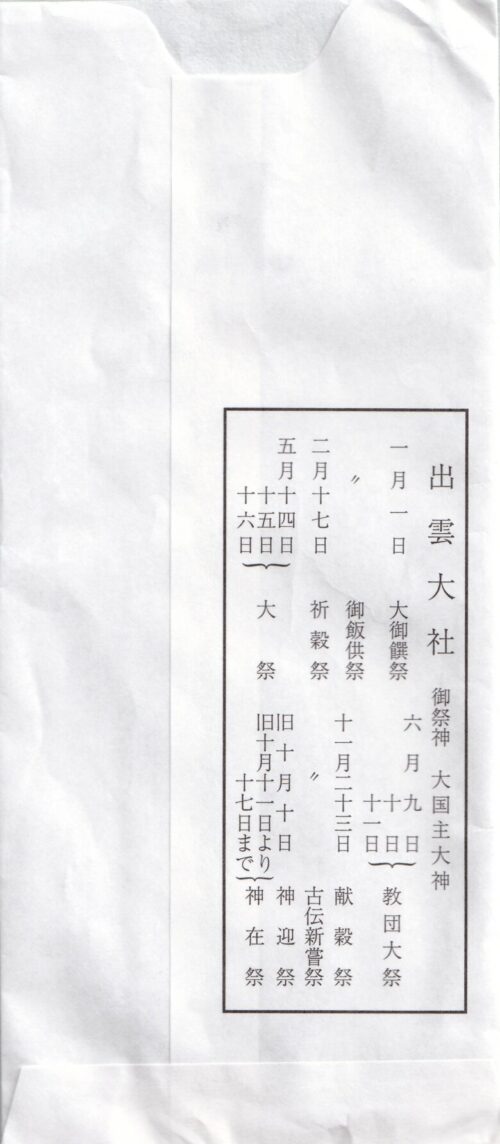 出雲大社 御祭神 大国主大神
一月一日 大御饌祭
〃 御飯供祭
二月十七日 祈穀祭
五月十四日
十五日
十六日 大祭
六月九日
十日
十一日 教団大祭
十一月二十三日 献穀祭
〃 古伝新嘗祭
旧十月十日 神迎祭
旧十月十一日より
十七日まで 神在祭